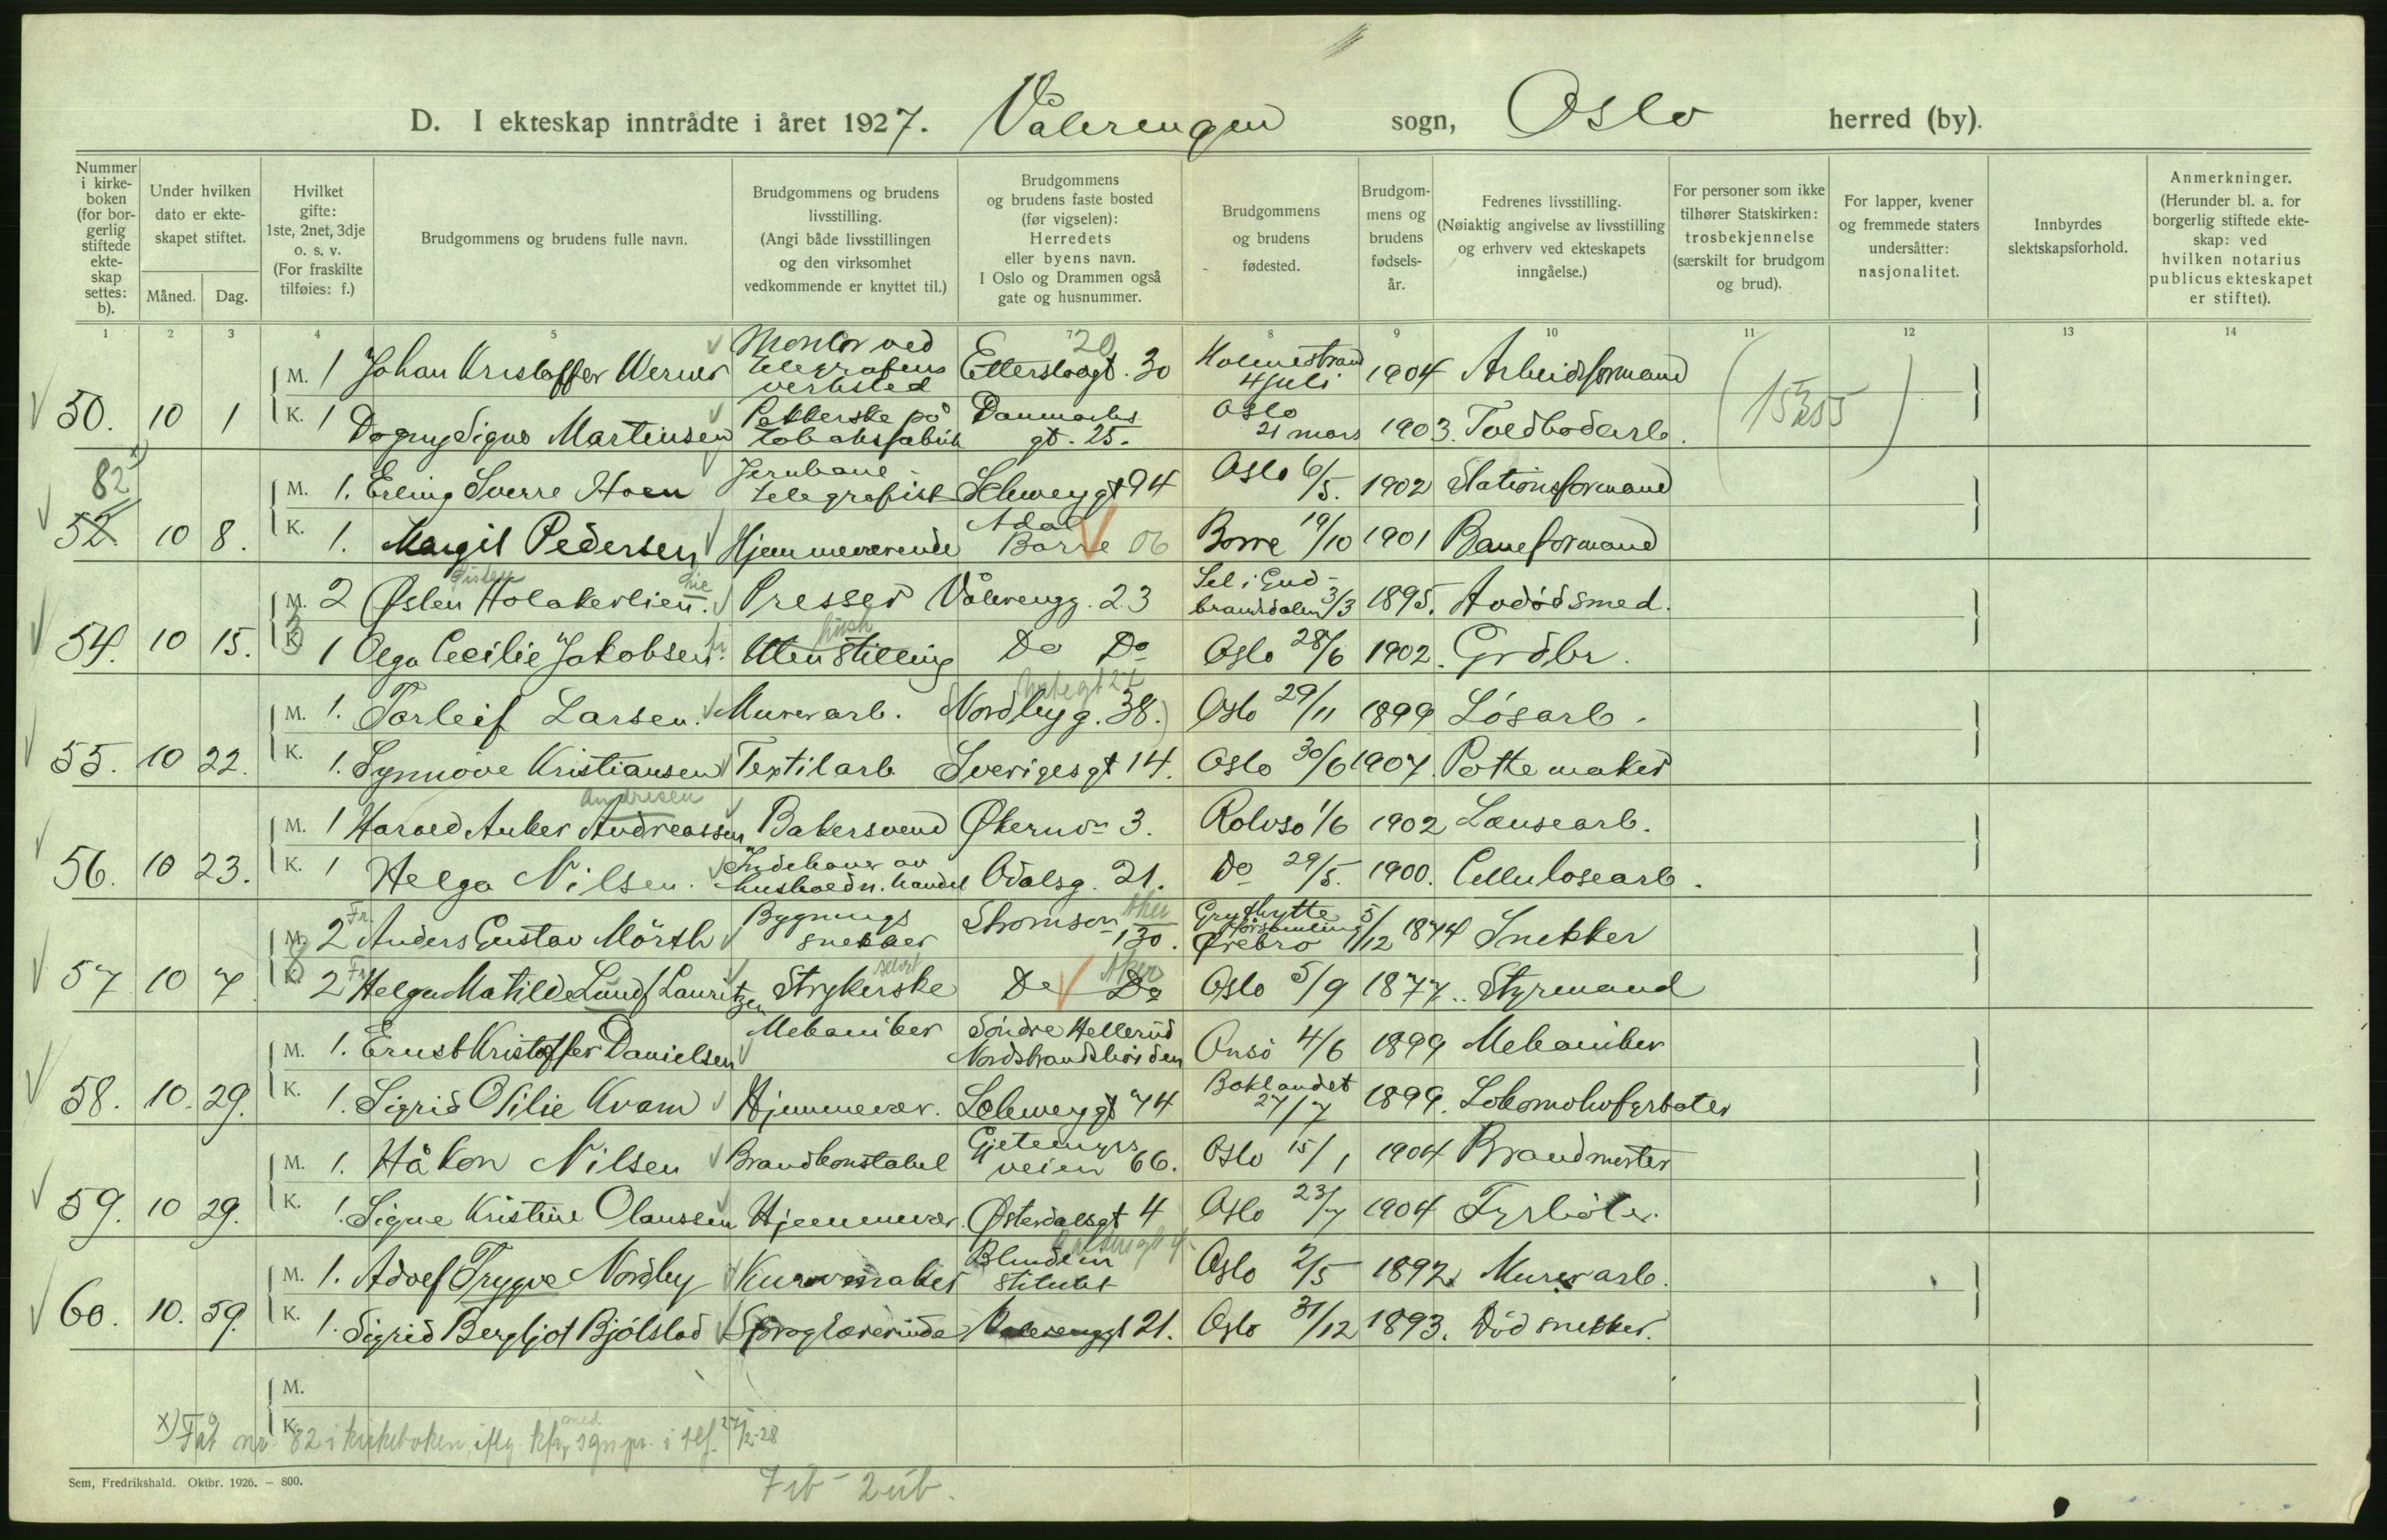 D. I ekteskap inntrådte i året 1927. Vålerengen sogn, Oslo herred (by).
Nummer i kirke-boken (for bor-gerlig stiftede ekte-skap settes: b).
Under hvilken dato er ekte-skapet stiftet.
Måned. Dag.
Hvilket gifte: 1ste, 2net, 3dje o. s. v. (For fraskilte tilføies: f.)
Brudgommens og brudens fulle navn.
Brudgommens og brudens livsstilling. (Angi både livsstillingen og den virksomhet vedkommende er knyttet til.)
Brudgommens og brudens faste bosted (før vigselen): Herredets eller byens navn. I Oslo og Drammen også gate og husnummer.
Brudgommens og brudens fødested.
Brudgom-mens og brudens fødsels-år.
Fedrenes livsstilling. (Nøiaktig angivelse av livsstilling og erhverv ved ekteskapets inngåelse.)
For personer som ikke tilhører Statskirken: trosbekjennelse (særskilt for brudgom og brud).
For lapper, kvener og fremmede staters undersåtter: nasjonalitet.
Innbyrdes slektskapsforhold.
Anmerkninger. (Herunder bl. a. for borgerlig stiftede ekte-skap: ved hvilken notarius publicus ekteskapet er stiftet).
1 2 3 4 5 7 8 9 10 11 12 13 14
M. 1 Johan Kristoffer Werner Montør ved telegrafens verksted Etterstadgt. 30 20 Holmestrand 4 juli 1904 Arbeidsformand
50. 10 1 K. 1 Dagny Signe Martinsen Pakkerske på tobaksfabrik Danmarks gt. 25. Oslo 21 mars 1903. Toldbodarb.
82 x)
M. 1. Erling Sverre Hoen Jernbane-telegrafist Schweygt 94 Oslo 6/5. 1902 Stationsformand
52. 10 8. K. 1. Margit Pedersen Hjemmeværende Borre 06 Borre 19/10 1901 Baneformand
M. 2 Østen Holakerlien. Presser Vålerengg. 23 Sel i Gud-brandsdalen 3/3 1895. Avdød smed.
54. 10 15. K. 1 Olga Cecilie Jakobsen. Uten stilling Do Do Oslo 28/6 1902. Grdbr.
M. 1. Torleif Larsen. Murerarb. Nordbyg. 38. Oslo 29/11 1899 Løsarb.
55. 10 22. K. 1. Synnøve Kristiansen Textilarb Sverigesgt 14. Oslo 30/6 1907. Pottemaker
Andresen
M. 1 Harald Anker Andreassen Bakersvend Økernv. 3. Rolvsø 1/6 1902 Lensearb.
56. 10 23. K. 1 Helga Nilsen. Indehaver av husholdn. handel Odalsg. 21. Do 29/5. 1900. Cellulosearb.
M. 2 Fr. Anders Gustav Mörth Bygnings snekker Strømsv. 130. Aker Grythytte församling Örebro 5/12 1874 Snekker
57 10 7 K. 2 Fr. Helga Matilde Lund f Lauritzen Strykerske selvst Do Do Aker Oslo 5/9 1877. Styrmand
M. 1. Ernst Kristoffer Danielsen Mekaniker Søndre Hellerud Nordstrandshøiden Onsø 4/6 1899 Mekaniker
58. 10. 29. K. 1. Sigrid Otilie Kvam Hjemmevær. Schweygt 74 Baklandet 27/7 1899. Lokomotivfyrbøter
M. 1. Håkon Nilsen Brandkonstabel Gjetemyrs veien 66. Oslo 15/1 1904 Brandmester
59. 10 29. K. 1. Signe Kristine Olaussen Hjemmevær. Østerdalsgt 4 Oslo 23/7 1904 Fyrbøter.
M. 1. Adolf Trygve Nordby Kurvmaker Blindein stitutet Oslo 2/5 1897. Murerarb.
60. 10. 59. K. 1. Sigrid Bergljot Bjølstad Sproglærerinde Vålerenggt 21. Oslo 31/12 1893. Død snekker.
M.
K.
x) Får nr. 82 i kirkeboken, iflg. sgnpr. i tlf. 27/2-28
Sem, Fredrikshald. Oktbr. 1926. – 800.
7 ib – 2 üb.